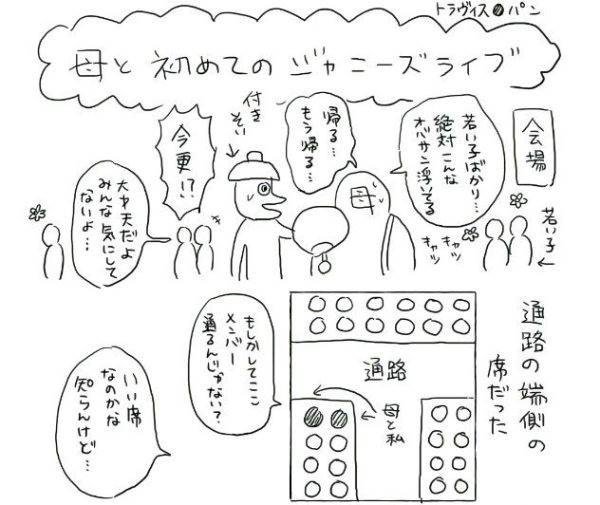 トラヴィス●パン
母と初めてのジャニーズライブ
会場
若い子
若い子ばかり…
絶対こんな
オバサン浮いてる
キャッ
キャッ
帰る…
もう帰る…
母
付き
そい
今更!?
大丈夫だよ
みんな気にして
ないよ…
通路の端側の
席だった
通路
母と私
もしかしてここ
メンバー
通るんじゃない?
いい席
なのかな
知らんけど…